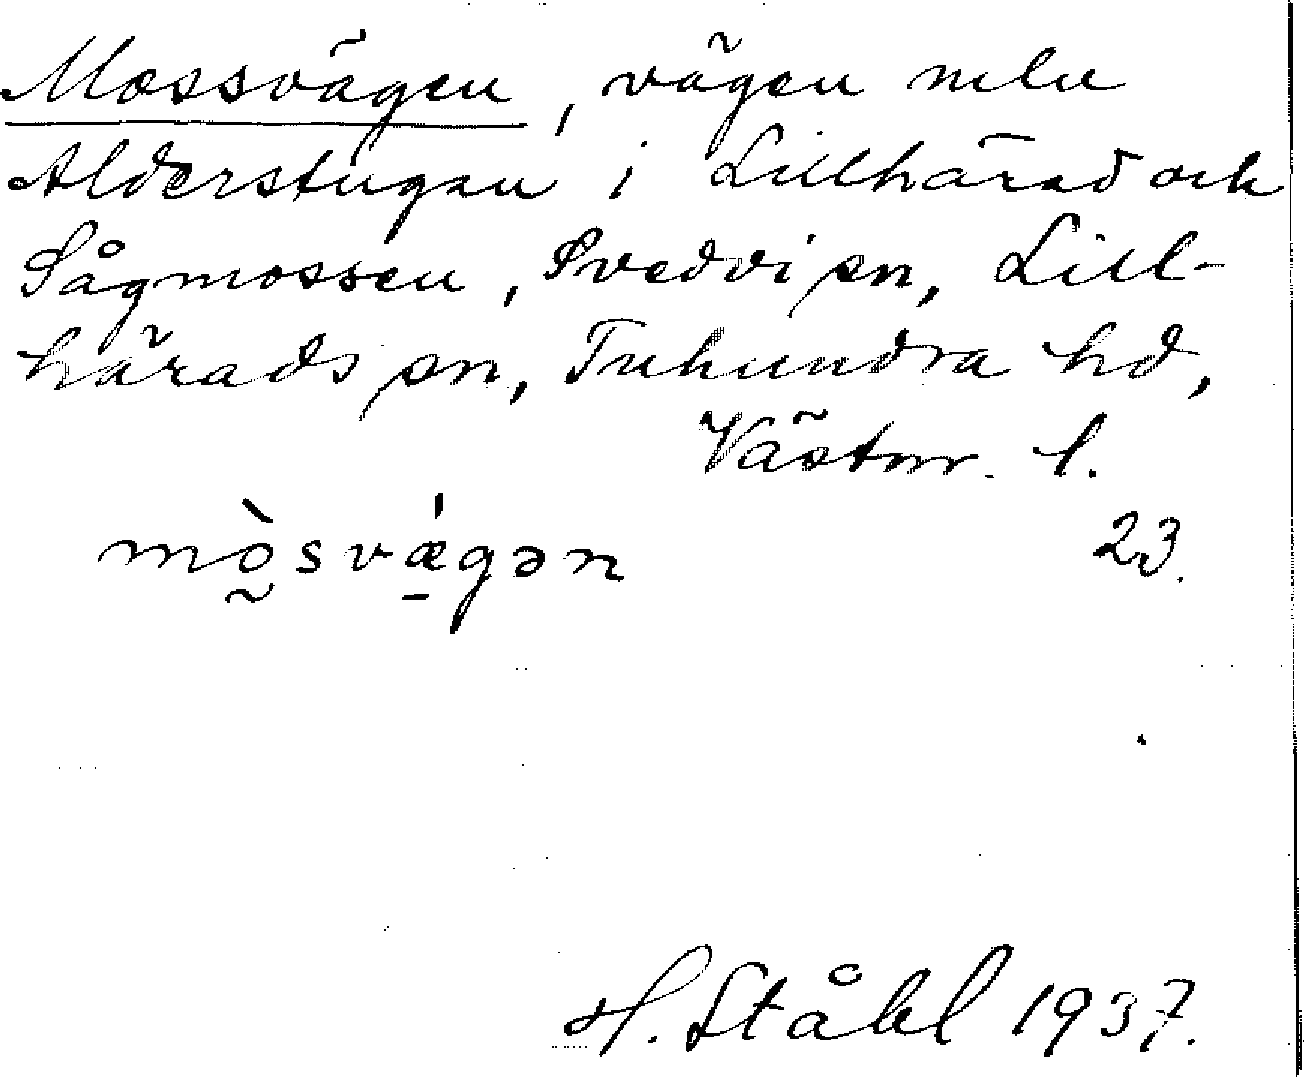 Mossvägen, vägen mln
Alderstugan i Lillhärad och
Sågmossen, Svedvi sn, Lill-
härads sn, Tuhundra hd,
Västm. l.
mò̰svǽ̱gən 23.
H. Ståhl 1937.